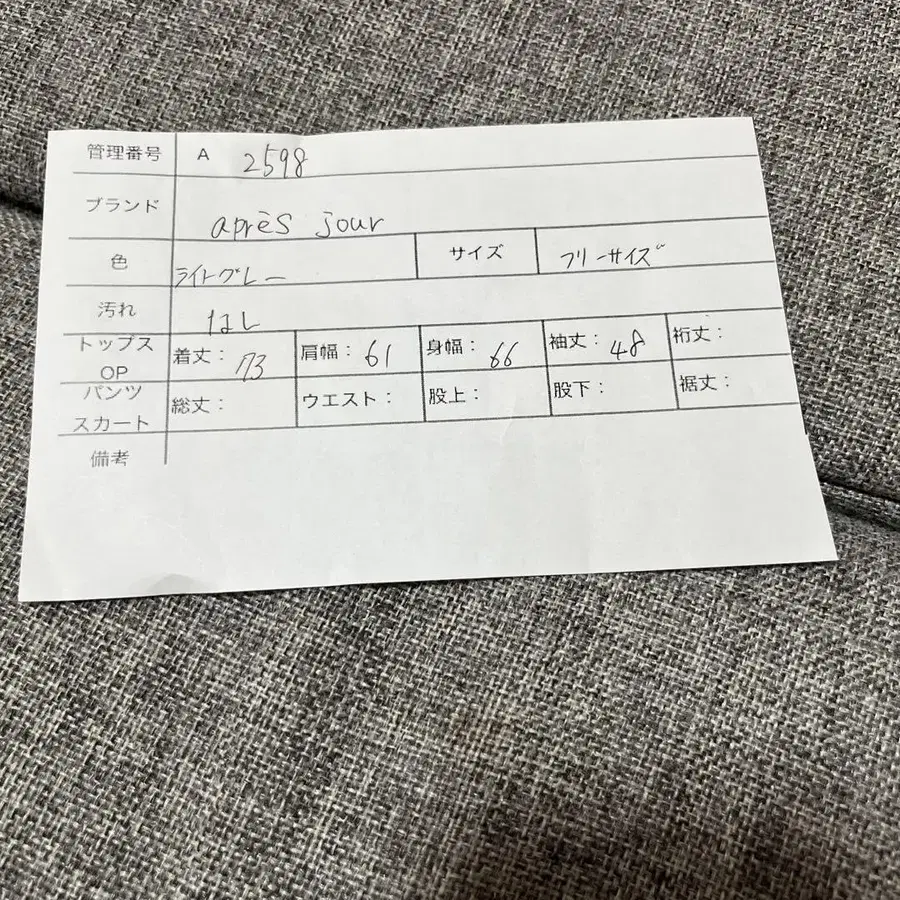 管理番号 A 2598
ブランド après jour
色 ライトグレー サイズ フリーサイズ
汚れ なし
トップス OP 着丈: 73 肩幅: 61 身幅: 66 袖丈: 48 裄丈:
パンツ スカート 総丈: ウエスト: 股上: 股下: 裾丈:
備考